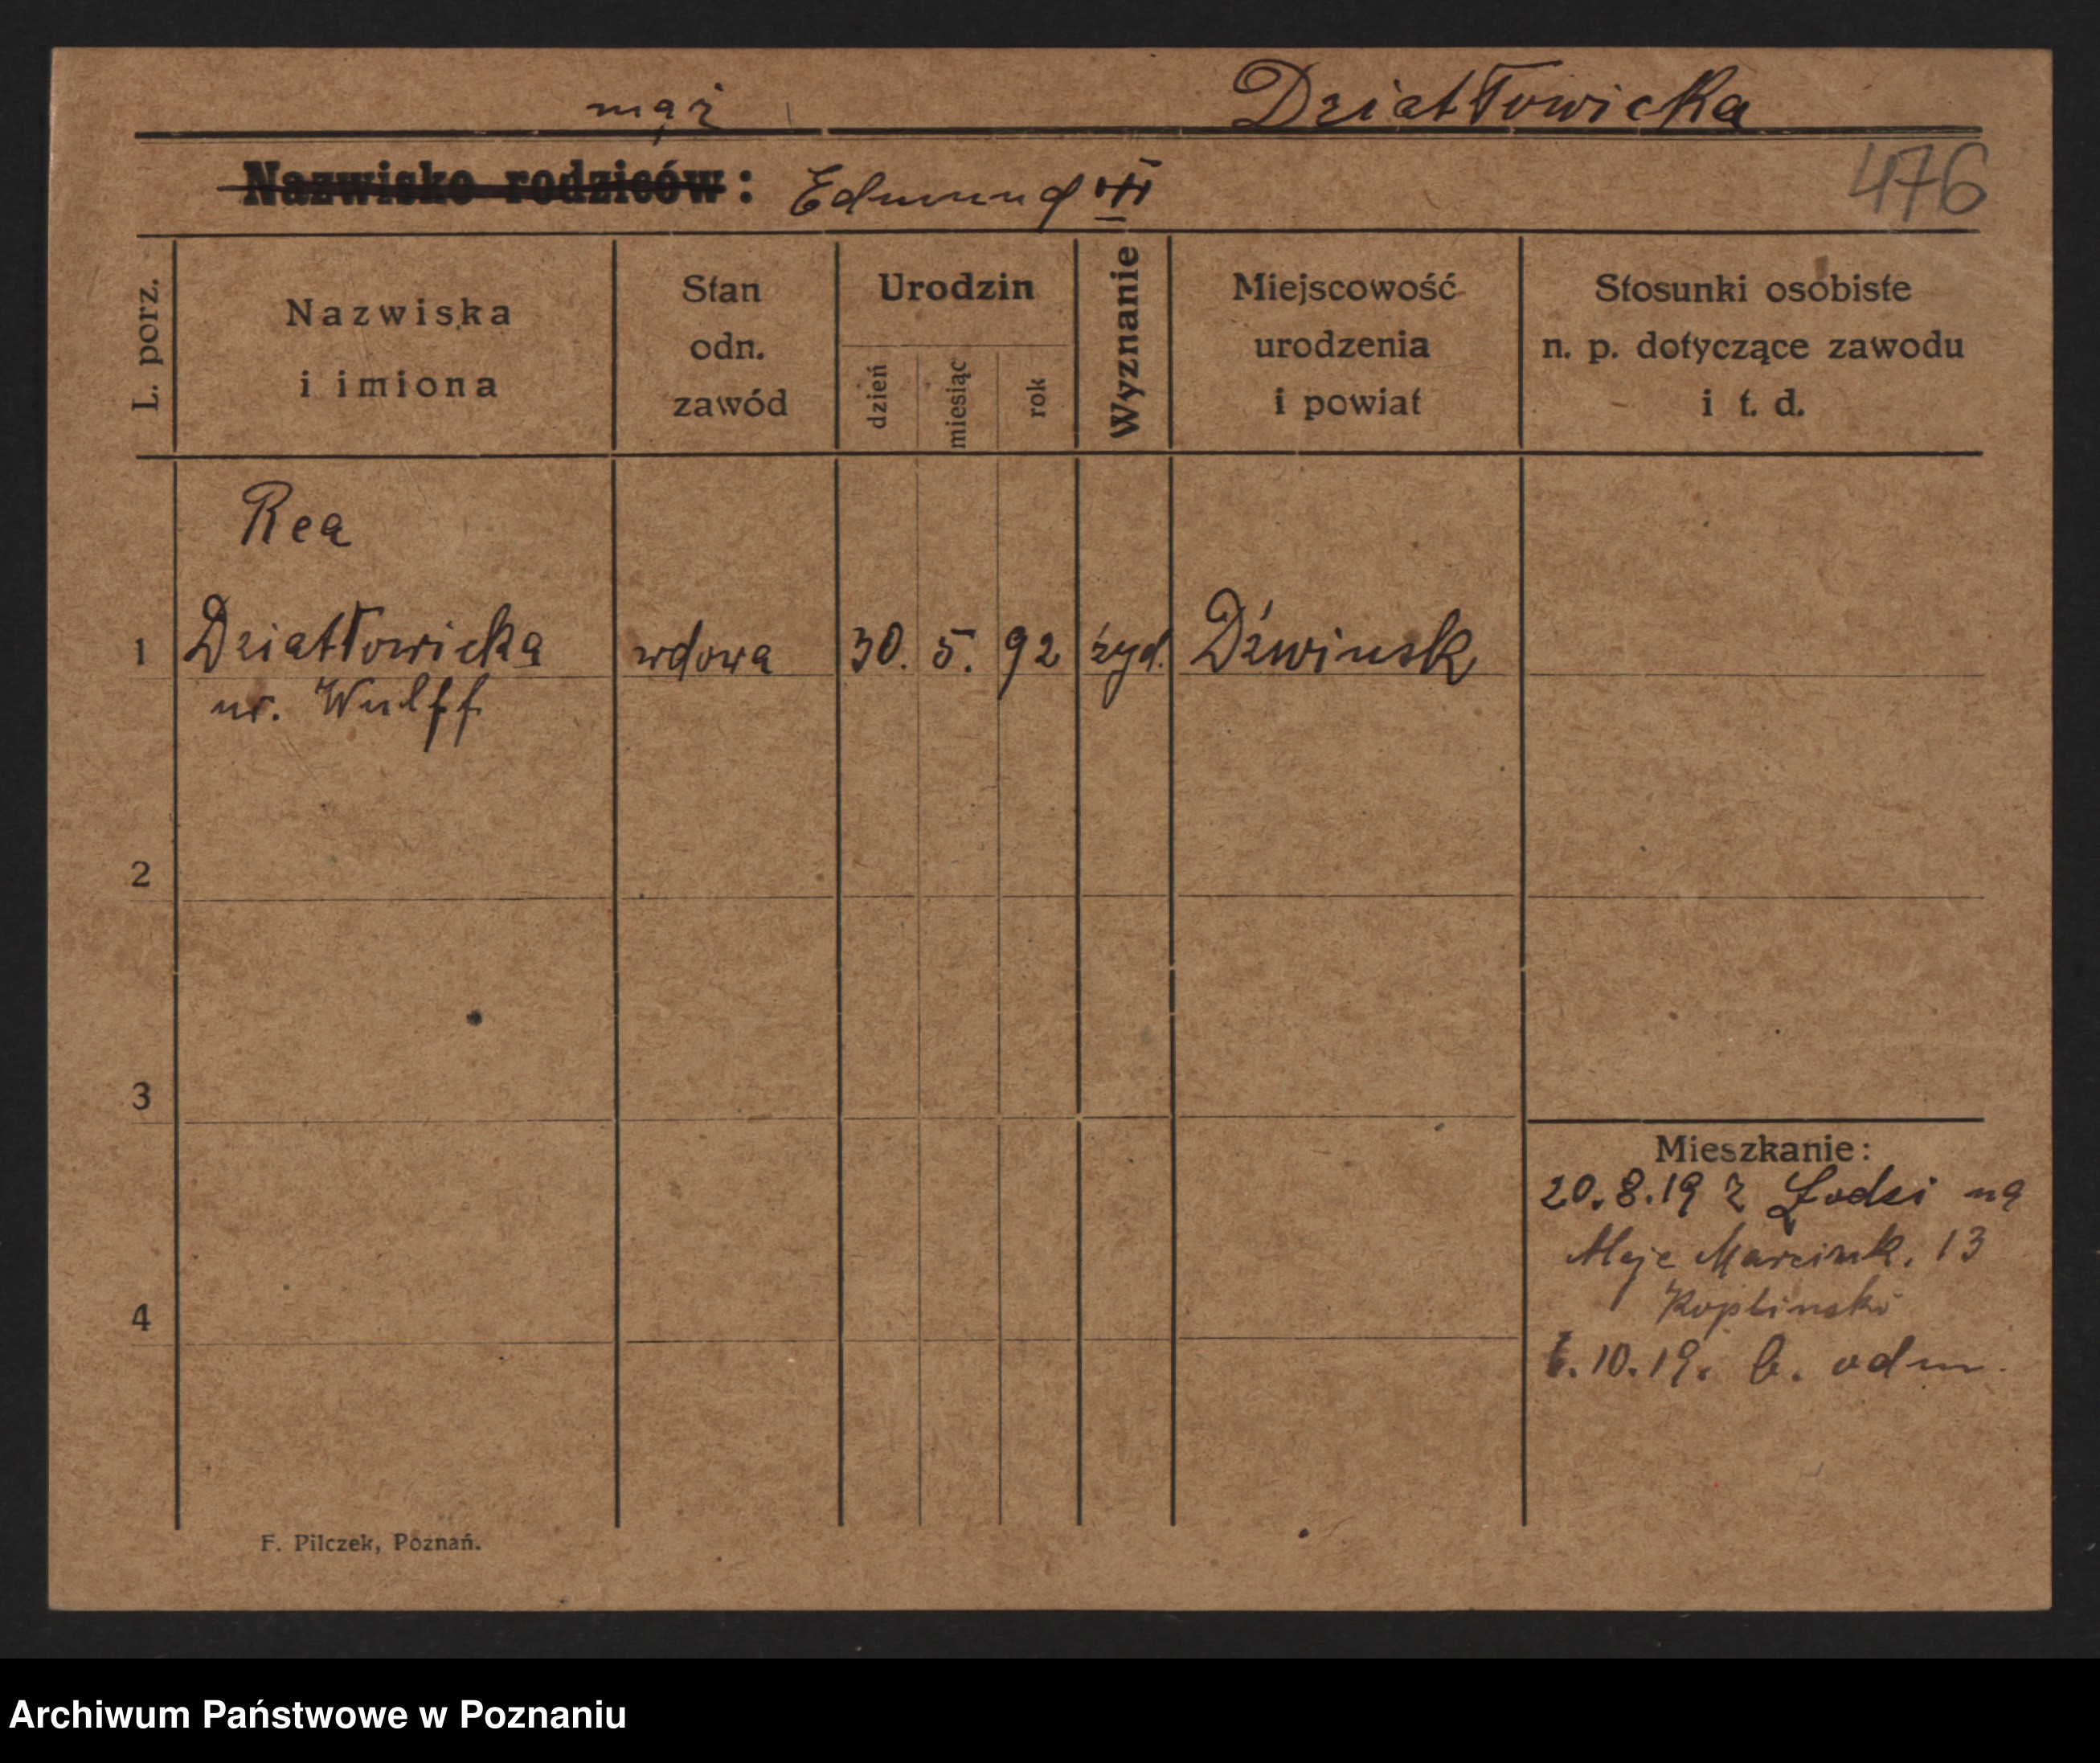 mąż Dziatłowicka
Nazwisko rodziców: Edmund
476
L. porz.
Nazwiska
i imiona
Stan
odn.
zawód
Urodzin
dzień
miesiąc
rok
Wyznanie
Miejscowość
urodzenia
i powiat
Stosunki osobiste
n. p. dotyczące zawodu
i t. d.
Rea
1 Dziatłowicka wdowa 30. 5. 92 żyd. Dźwinsk
ur. Wulff
2
3
Mieszkanie:
20.8.19 z Łodzi na
Aleje Marcink. 13
4
10.19. b. odm.
F. Pilczek, Poznań.
Archiwum Państwowe w Poznaniu